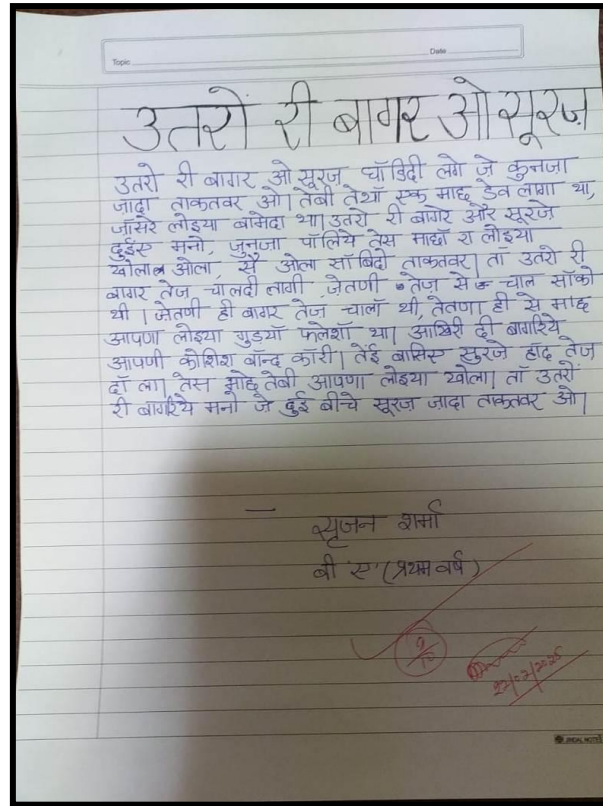 Topic
Date
उतरों री बागर ओ सूरज़
उतरो री बागर ओ सूरज़ घॉडिदी लगे जे कुनजा
जादा ताकतवर ओ। तेबी तेथॉ एक माछ डेव लागा था,
जॉसरे लोइया बामेदा था। उतरो री बागरे और सूरजे
दुईए मनो, जुनजा पॉलिये तेस माछॉ रा लोइया
खोला ओला, सै ओला सॉबिदी ताकतवर। तॉ उतरो री
बागर तेज चालदी लागी जेतणी तेज से चाल सॉको
थी। जेतणी ही बागर तेज चालॉ थी, तेतणा ही से माछ
आपणा लोइया गुडयॉ फलेशॉ था। आखिरी दी बागरिये
आपणी कोशिश बॉन्द कॉरी। तेई बासिए सुरजे हॉद तेज
दॉ ला। तेस माछे तेबी आपणा लोइया खोला। तॉ उतरों
री बागरिये मनो जे दुई बीचे सूरज़ जादा ताकतवर ओ।
सृजन शर्मा
बी ए (प्रथम वर्ष)
9/10
22/02/2025
JINDAL NOTE